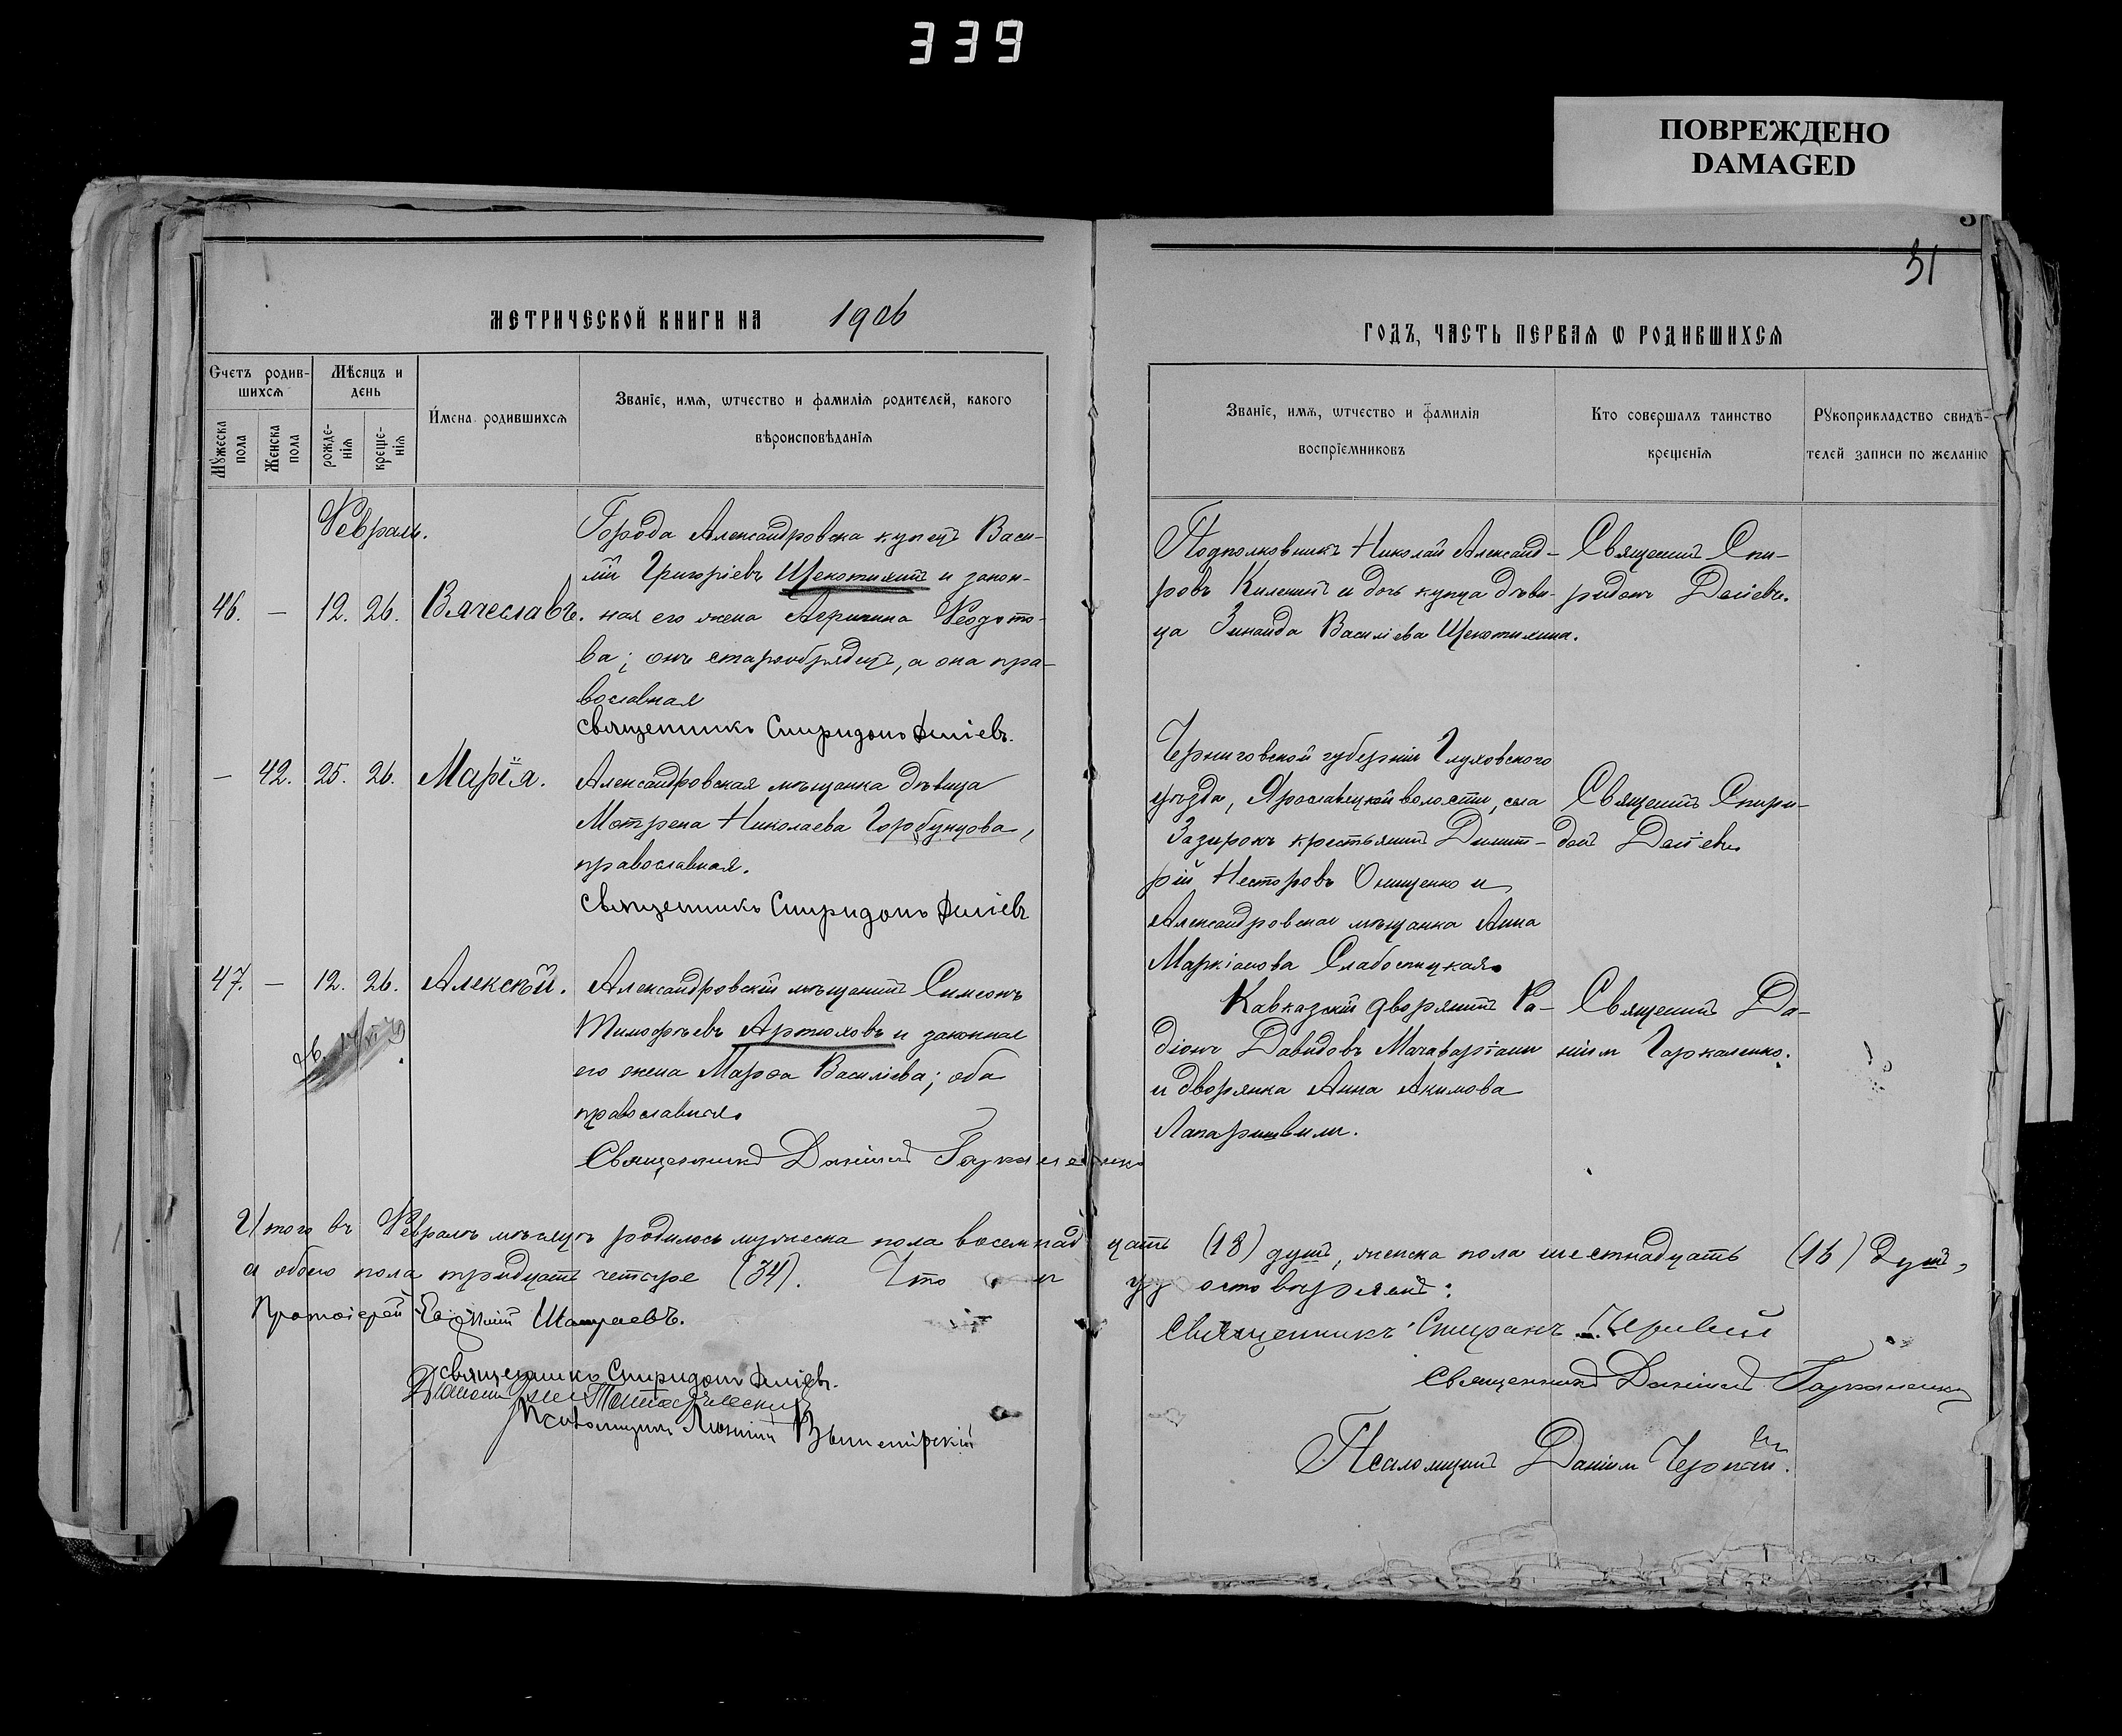 339
ПОВРЕЖДЕНО
DAMAGED
31
МЕТРИЧЕСКОЙ КНИГИ НА 1906
ГОДЪ, ЧАСТЬ ПЕРВАЯ Ѡ РОДИВШИХСЯ
Счетъ родив-
шихсѧ
Мѣсяцъ и
день
Мꙋжеска
пола
Женска
пола
рожде-
нія
креще-
нія
Имена родившихсѧ
Званіе, имѧ, ѡтчество и фамиліѧ родителей, какого
вѣроисповѣданіѧ
Званіе, имѧ, ѡтчество и фамиліѧ
воспріемниковъ
Кто совершалъ таинство
крещеніѧ
Рꙋкоприкладство свидѣ-
телей записи по желанію
Февраль.
46. — 12. 26. Вячеславъ.
Города Александровска купецъ Васи-
лій Григоріевъ Щекотихинъ и закон-
ная его жена Агрипина Феодото-
ва; онъ старообрядецъ, а она пра-
вославная
Священникъ Спиридонъ
Подполковникъ Николай Александ-
ровъ и дочь купца дѣви-
ца Зинаида Василіева Щекотихина.
Священникъ Спи-
ридонъ
— 42. 25. 26. Марія.
Александровская мѣщанка дѣвица
Мотрена Николаева Горбунцова,
православная.
Священникъ Спиридонъ
Черниговской губерніи Глуховского
уѣзда, Ярославецкой волости, села
Зазирокъ крестьянинъ Димит-
рій Несторовъ Онищенко и
Александровская мѣщанка Анна
Маркіанова Слабоспицкая.
Священникъ Спири-
донъ
47. — 12. 26. Алексѣй.
Александровскій мѣщанинъ Симеонъ
Тимофѣевъ Артюховъ и законная
его жена Марѳа Василіева; оба
православные.
Священникъ Даніилъ Гаркаленко
Кавказскій дворянинъ Ра-
діонъ Давидовъ Мачаваріани
и дворянка Анна Акимова
Лапаришвили.
Священникъ Да-
ніилъ Гаркаленко.
Итого въ Февралѣ мѣсяцѣ родилось мужеска пола восемнадцать (18) душъ, женска пола шестнадцать (16) душъ,
а обоего пола тридцать четыре (34). Что и удостовѣряемъ:
Протоіерей
Священникъ
Священникъ Спиридонъ
Священникъ Даніилъ Гаркаленко
Псаломщикъ
Псаломщикъ Даніилъ